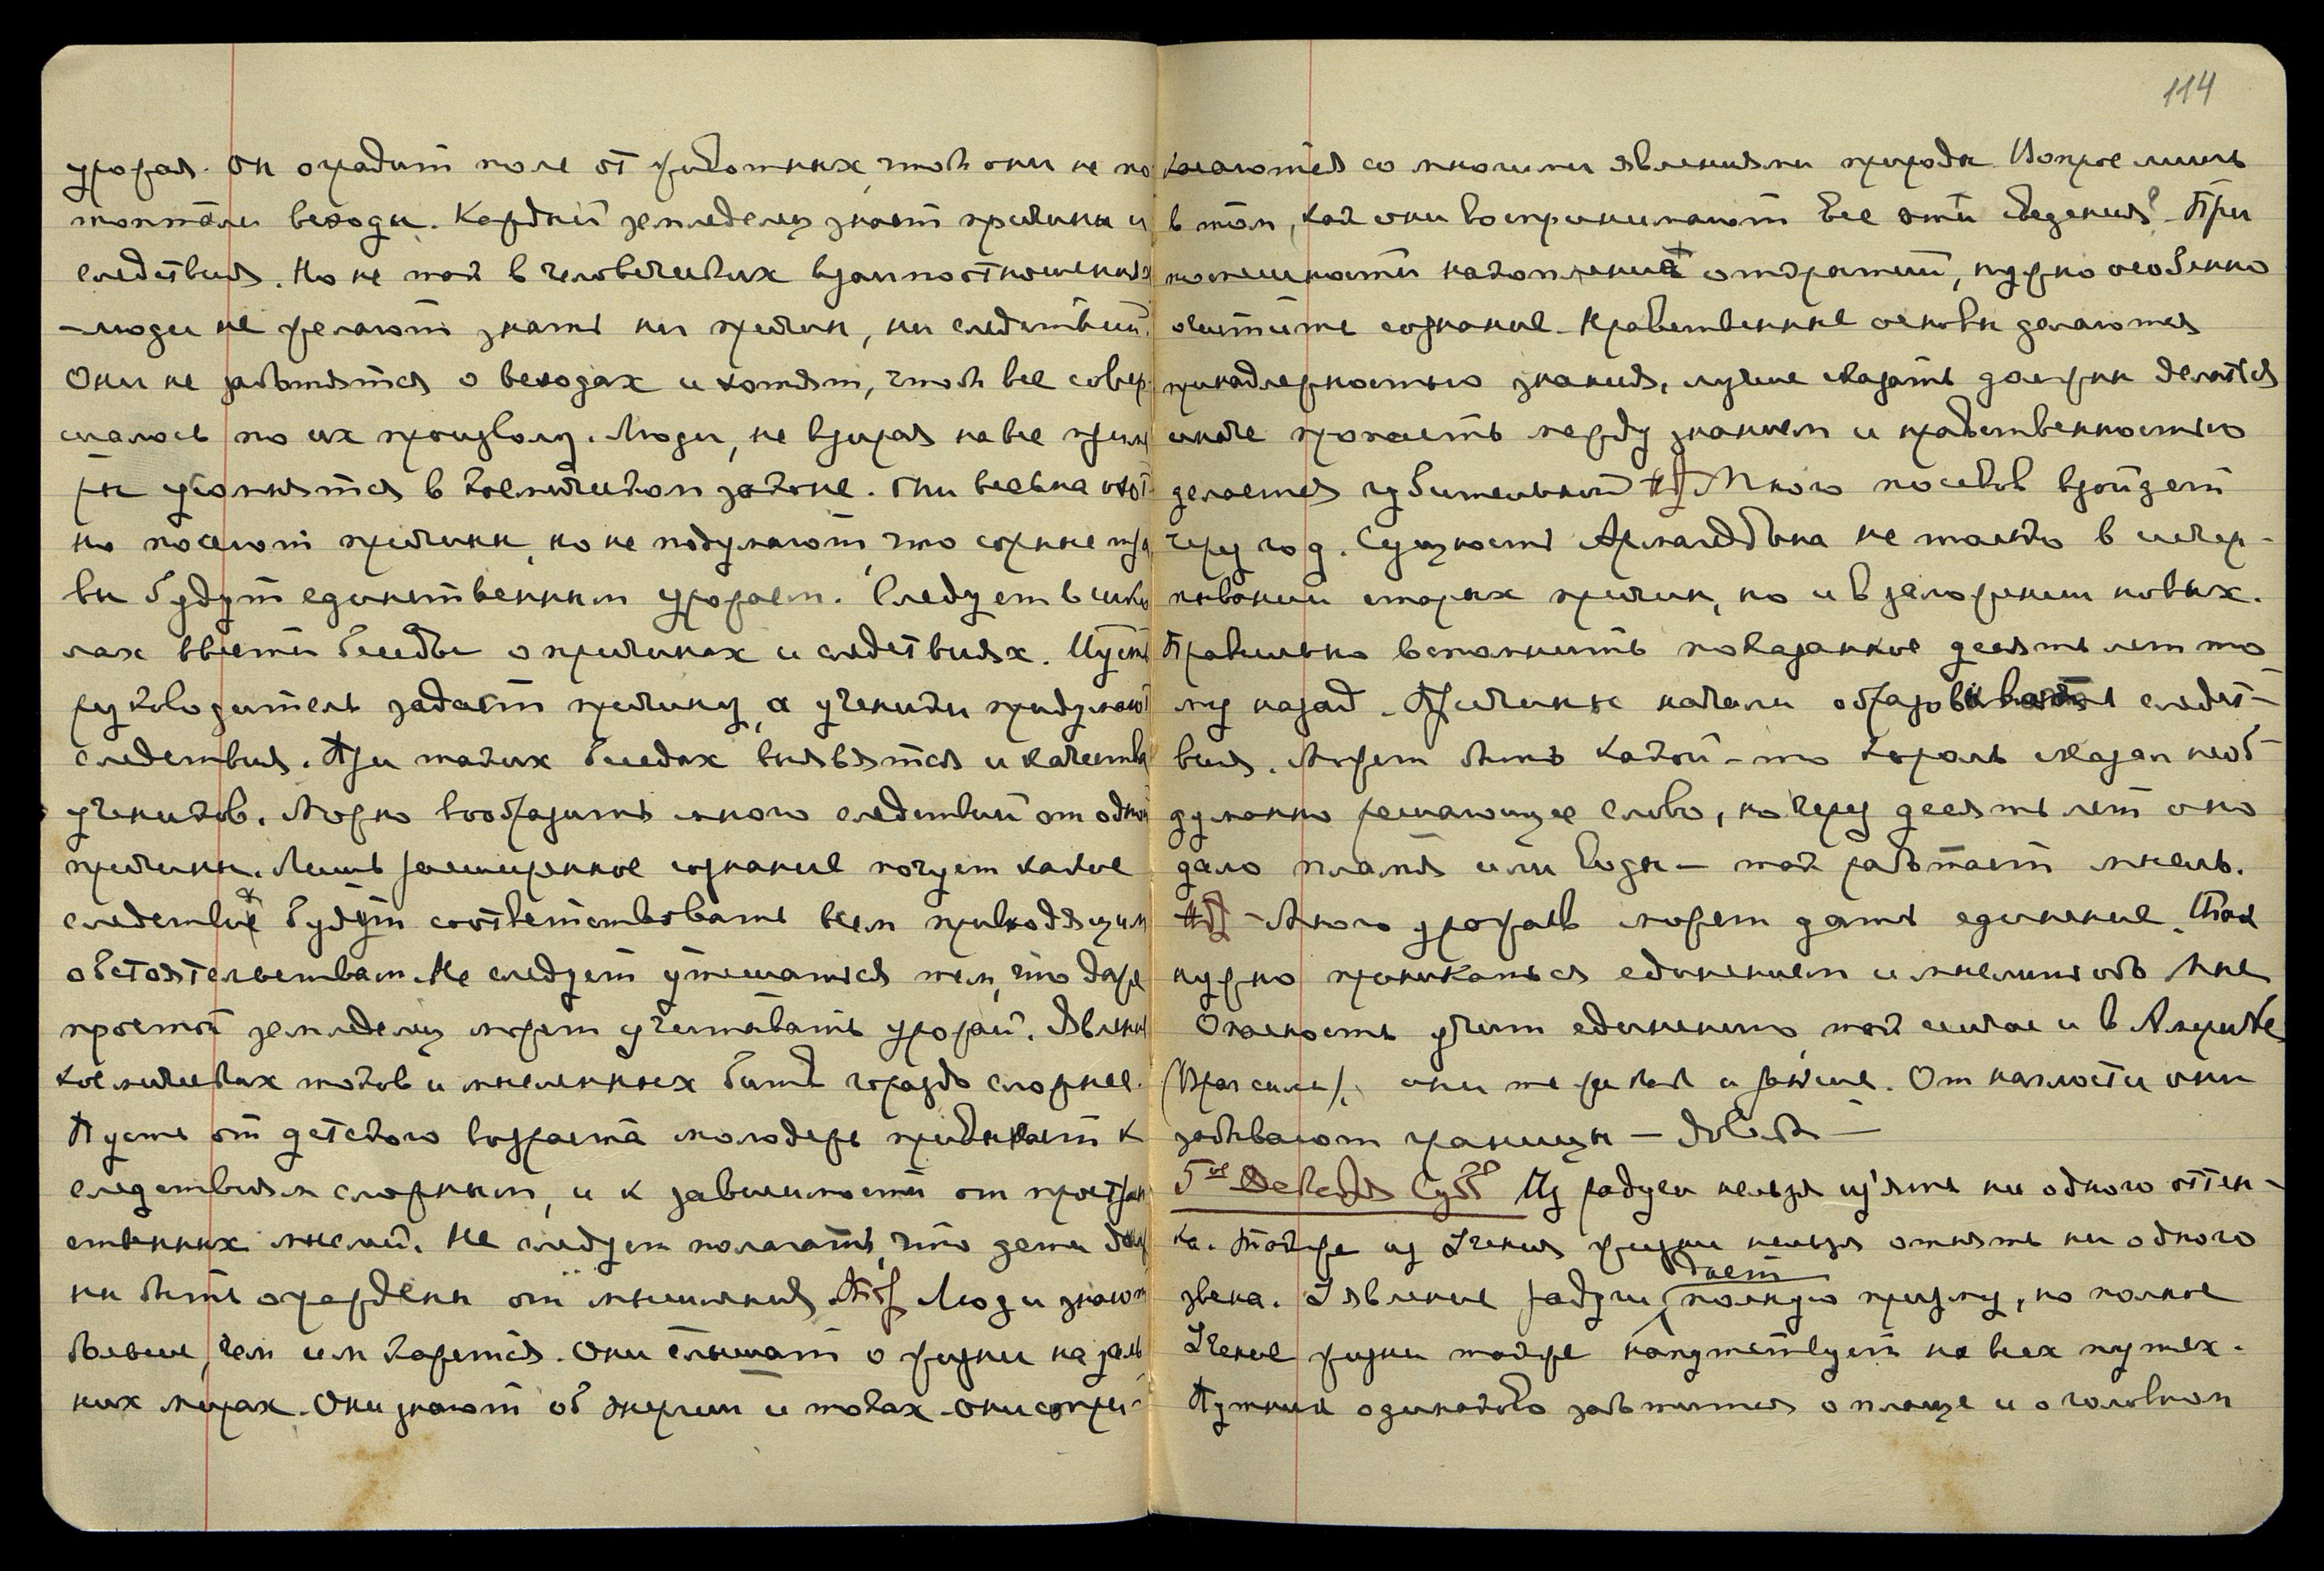 урожая. Он оградит поле от животных, чтоб они не по
топтали всходы. Каждый земледелец знает причины и
следствия. Но не так в человеческих взаимоотношениях
– люди не желают знать ни причин, ни следствий.
Они не заботятся о всходах и хотят, чтоб все совер
шалось по их произволу. Люди, не взирая на все приме
ры усомнятся в космическом законе. Они весьма охот
но посеют причины, но не подумают, что сорные тра
вы будут единственным урожаем. Следует в шко
лах ввести беседы о причинах и следствиях. Пусть
руководитель задаст причину, а ученики придумают
следствия. При таких беседах выявятся и качества
учеников. Можно вообразить много следствий от одной
причины. Лишь расширенное сознание почует какое
следствие будет соответствовать всем привходящим
обстоятельствам. Не следует утешаться тем, что даже
простой земледелец может учитывать урожай. Явление
космических токов и мысленных битв гораздо сложнее.
Пусть от детского возраста молодежь привыкает к
следствиям сложным, и к зависимости от простран
ственных мыслей. Не следует полагать, что дети долж
ны быть ограждены от мышления. Люди знают
больше, чем им кажется. Они слышат о жизни на даль
них мирах. Они знают об энергии и токах. Они сопри-
114
касаются со многими явлениями природы. Вопрос лишь
в том, как они воспринимают все эти сведения? При
поспешности накопления открытий, нужно особенно
очистить сознание. Нравственные основы делаются
принадлежностью знания, лучше сказать должны делаться
иначе пропасть между знанием и нравственностью
делается губительной. Много посевов взойдет
через год. Сущность Армагеддона не только в исчер-
пывании старых причин, но и в заложении новых.
Правильно вспомнить показанное десять лет то
му назад. Причины начали образовывать следст-
вия. Может быть какой-то король сказал необ-
думанно решающее слово, но через десять лет оно
дало пламя или воды – так работает мысль.
– Много урожаев может дать единение. Так
нужно проникаться единением и мыслить обо Мне
Опасность учит единению так сейчас и в Америке
(Враг силен), они те же как и раньше. От наглости они
забывают границы – довольно –
5ое Декабря Субб Из радуги нельзя изъять ни одного оттен-
ка. Также из Учения жизни нельзя отнять ни одного
звена. Явление радуги дает полную призму, но полное
Учение жизни также напутствует на всех путях.
Путник одинаково заботится о плаще и о головном